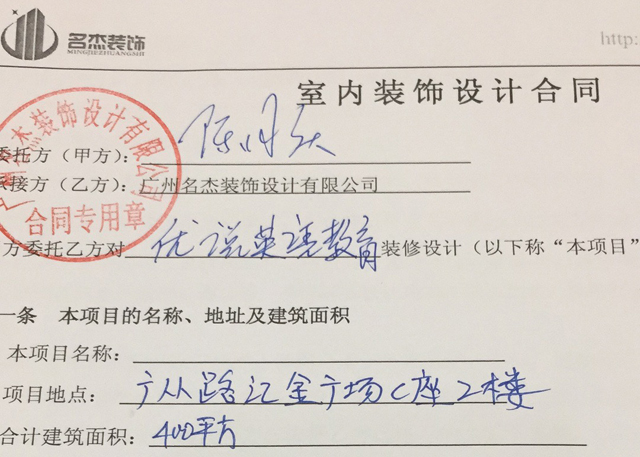 名杰装饰
MINGJIEZHUANGSHI
http:
室内装饰设计合同
委托方（甲方）：陈
承接方（乙方）：广州名杰装饰设计有限公司
广州名杰装饰设计有限公司
合同专用章
方委托乙方对 优说英语教育 装修设计（以下称“本项目”
一条 本项目的名称、地址及建筑面积
本项目名称：
项目地点：广从路汇金广场C座2楼
合计建筑面积：400平方